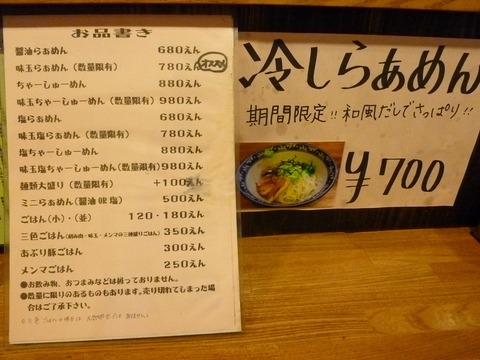 お品書き
醤油らぁめん 680えん
味玉らぁめん（数量限有） 780えん
オススメ
ちゃーしゅーめん 880えん
味玉ちゃーしゅーめん（数量限有）980えん
塩らぁめん 680えん
味玉塩らぁめん（数量限有） 780えん
塩ちゃーしゅーめん 880えん
味玉塩ちゃーしゅーめん（数量限有）980えん
麺類大盛り（数量限有） +100えん
ミニらぁめん（醤油OR塩） 500えん
ごはん（小）・（並） 120・180えん
三色ごはん（刻み肉・味玉・メンマの三種盛りごはん）350えん
あぶり豚ごはん 300えん
メンマごはん 250えん
●お飲み物、おつまみなどは扱っておりません。
●数量に限りのあるものもあります。売り切れてしまった場
合はご了承下さい。
冷しらぁめん
期間限定!!和風だしでさっぱり!!
¥700